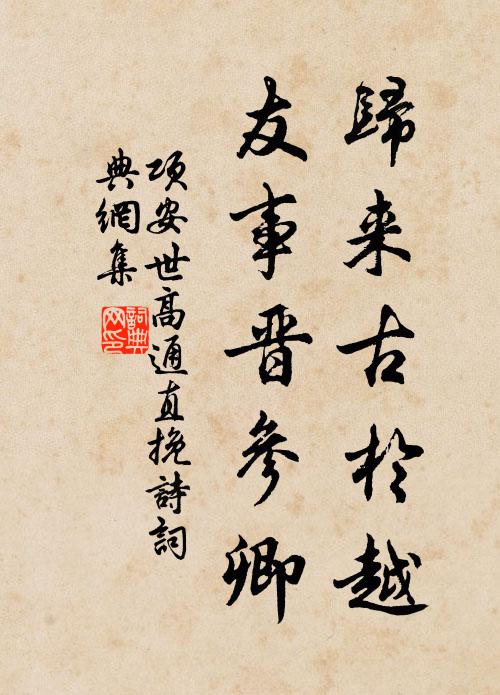 歸来古於越
友事晋參卿
項安世高通直挽詩詞
典網集
詞典
网印